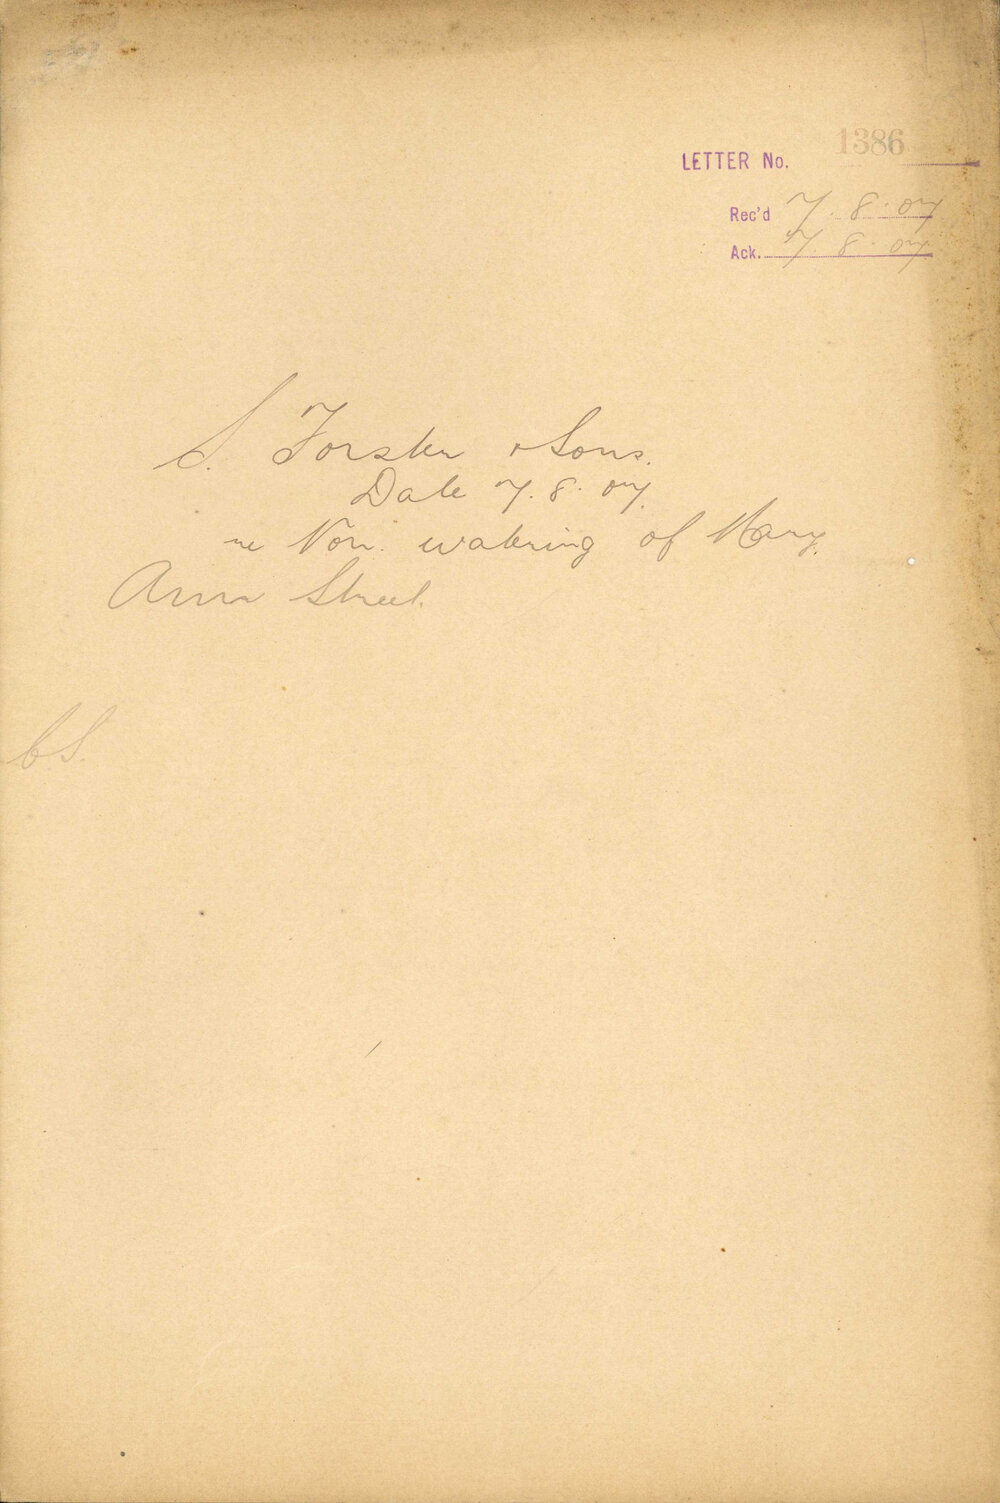 LETTER No. 1386
Rec'd 7.8.07
Ack. 7.8.07
S. Forster & Sons.
Date 7.8.07
re Non. watering of Mary
Ann Street.
C.S.